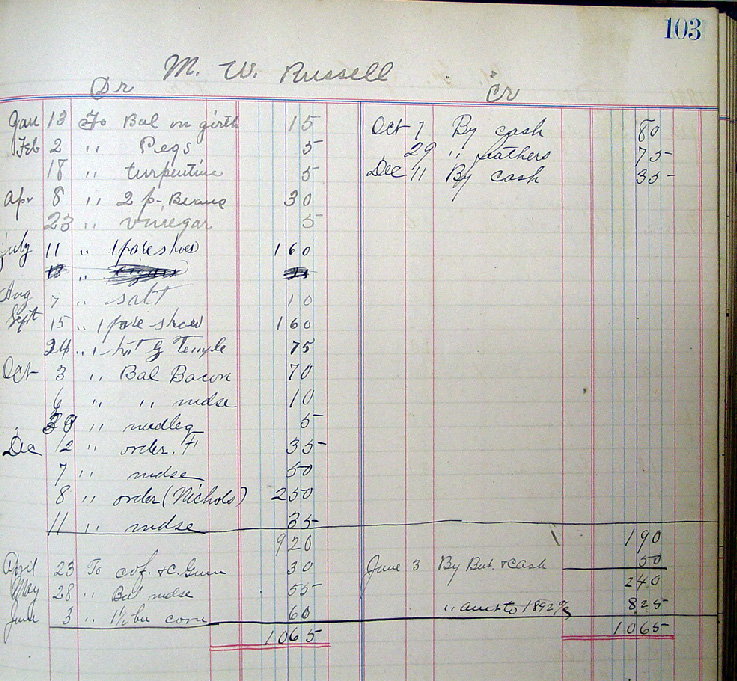 103
M. W. Russell
Dr Cr
Jan 13 To Bal on girth 15
Feb 2 " Pegs 5
18 " turpentine 5
Apr 8 " 2 p. Beans 30
23 " vinegar 5
July 11 " 1 pare shoes 160
Aug 7 " salt 10
Sept 15 " 1 pare shoes 160
24 " Temple 75
Oct 3 " Bal Bacon 70
6 " " mdse 10
" 5
Dec 1/2 " order. 35
7 " mdse 50
8 " order (Nichols) 250
11 " mdse 35
920
April 23 To 30
May 28 " Bal mdse 55
June 3 " corn 60
1065
Oct 7 By cash 80
29 " feathers 75
Dec 11 By cash 35
190
June 3 By But. & cash 50
240
" to 1892 825
1065